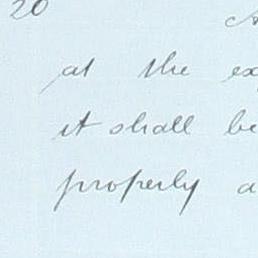 20
at the
it shall be
properly a